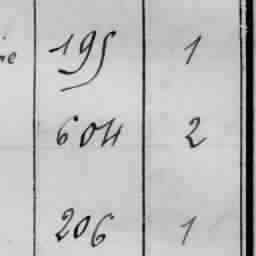 ne 195 1
604 2
206 1